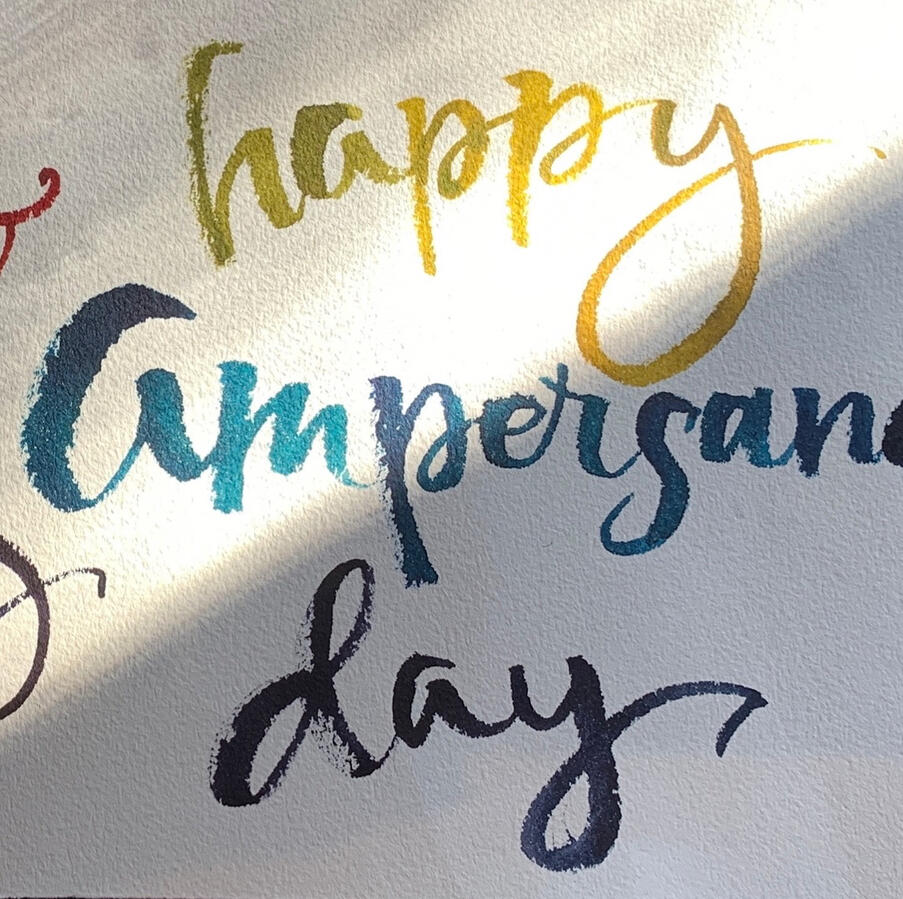 happy
Ampersan
day